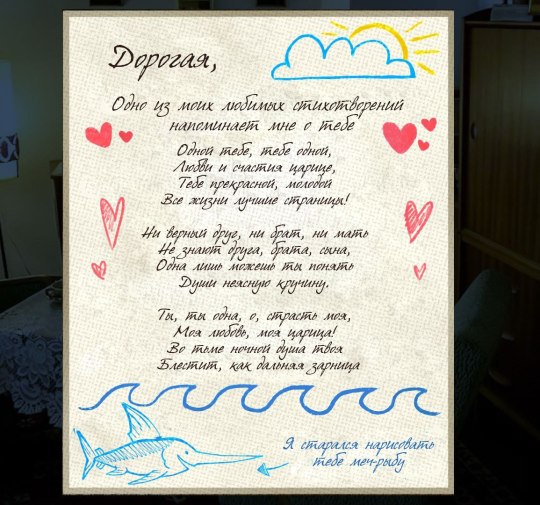 Дорогая,
Одно из моих любимых стихотворений
напоминает мне о тебе
Одной тебе, тебе одной,
Любви и счастия царице,
Тебе прекрасной, молодой
Все жизни лучшие страницы!
Ни верный друг, ни брат, ни мать
Не знают друга, брата, сына,
Одна лишь можешь ты понять
Души неясную кручину.
Ты, ты одна, о, страсть моя,
Моя любовь, моя царица!
Во тьме ночной душа твоя
Блестит, как дальняя зарница
Я старался нарисовать
тебе меч-рыбу